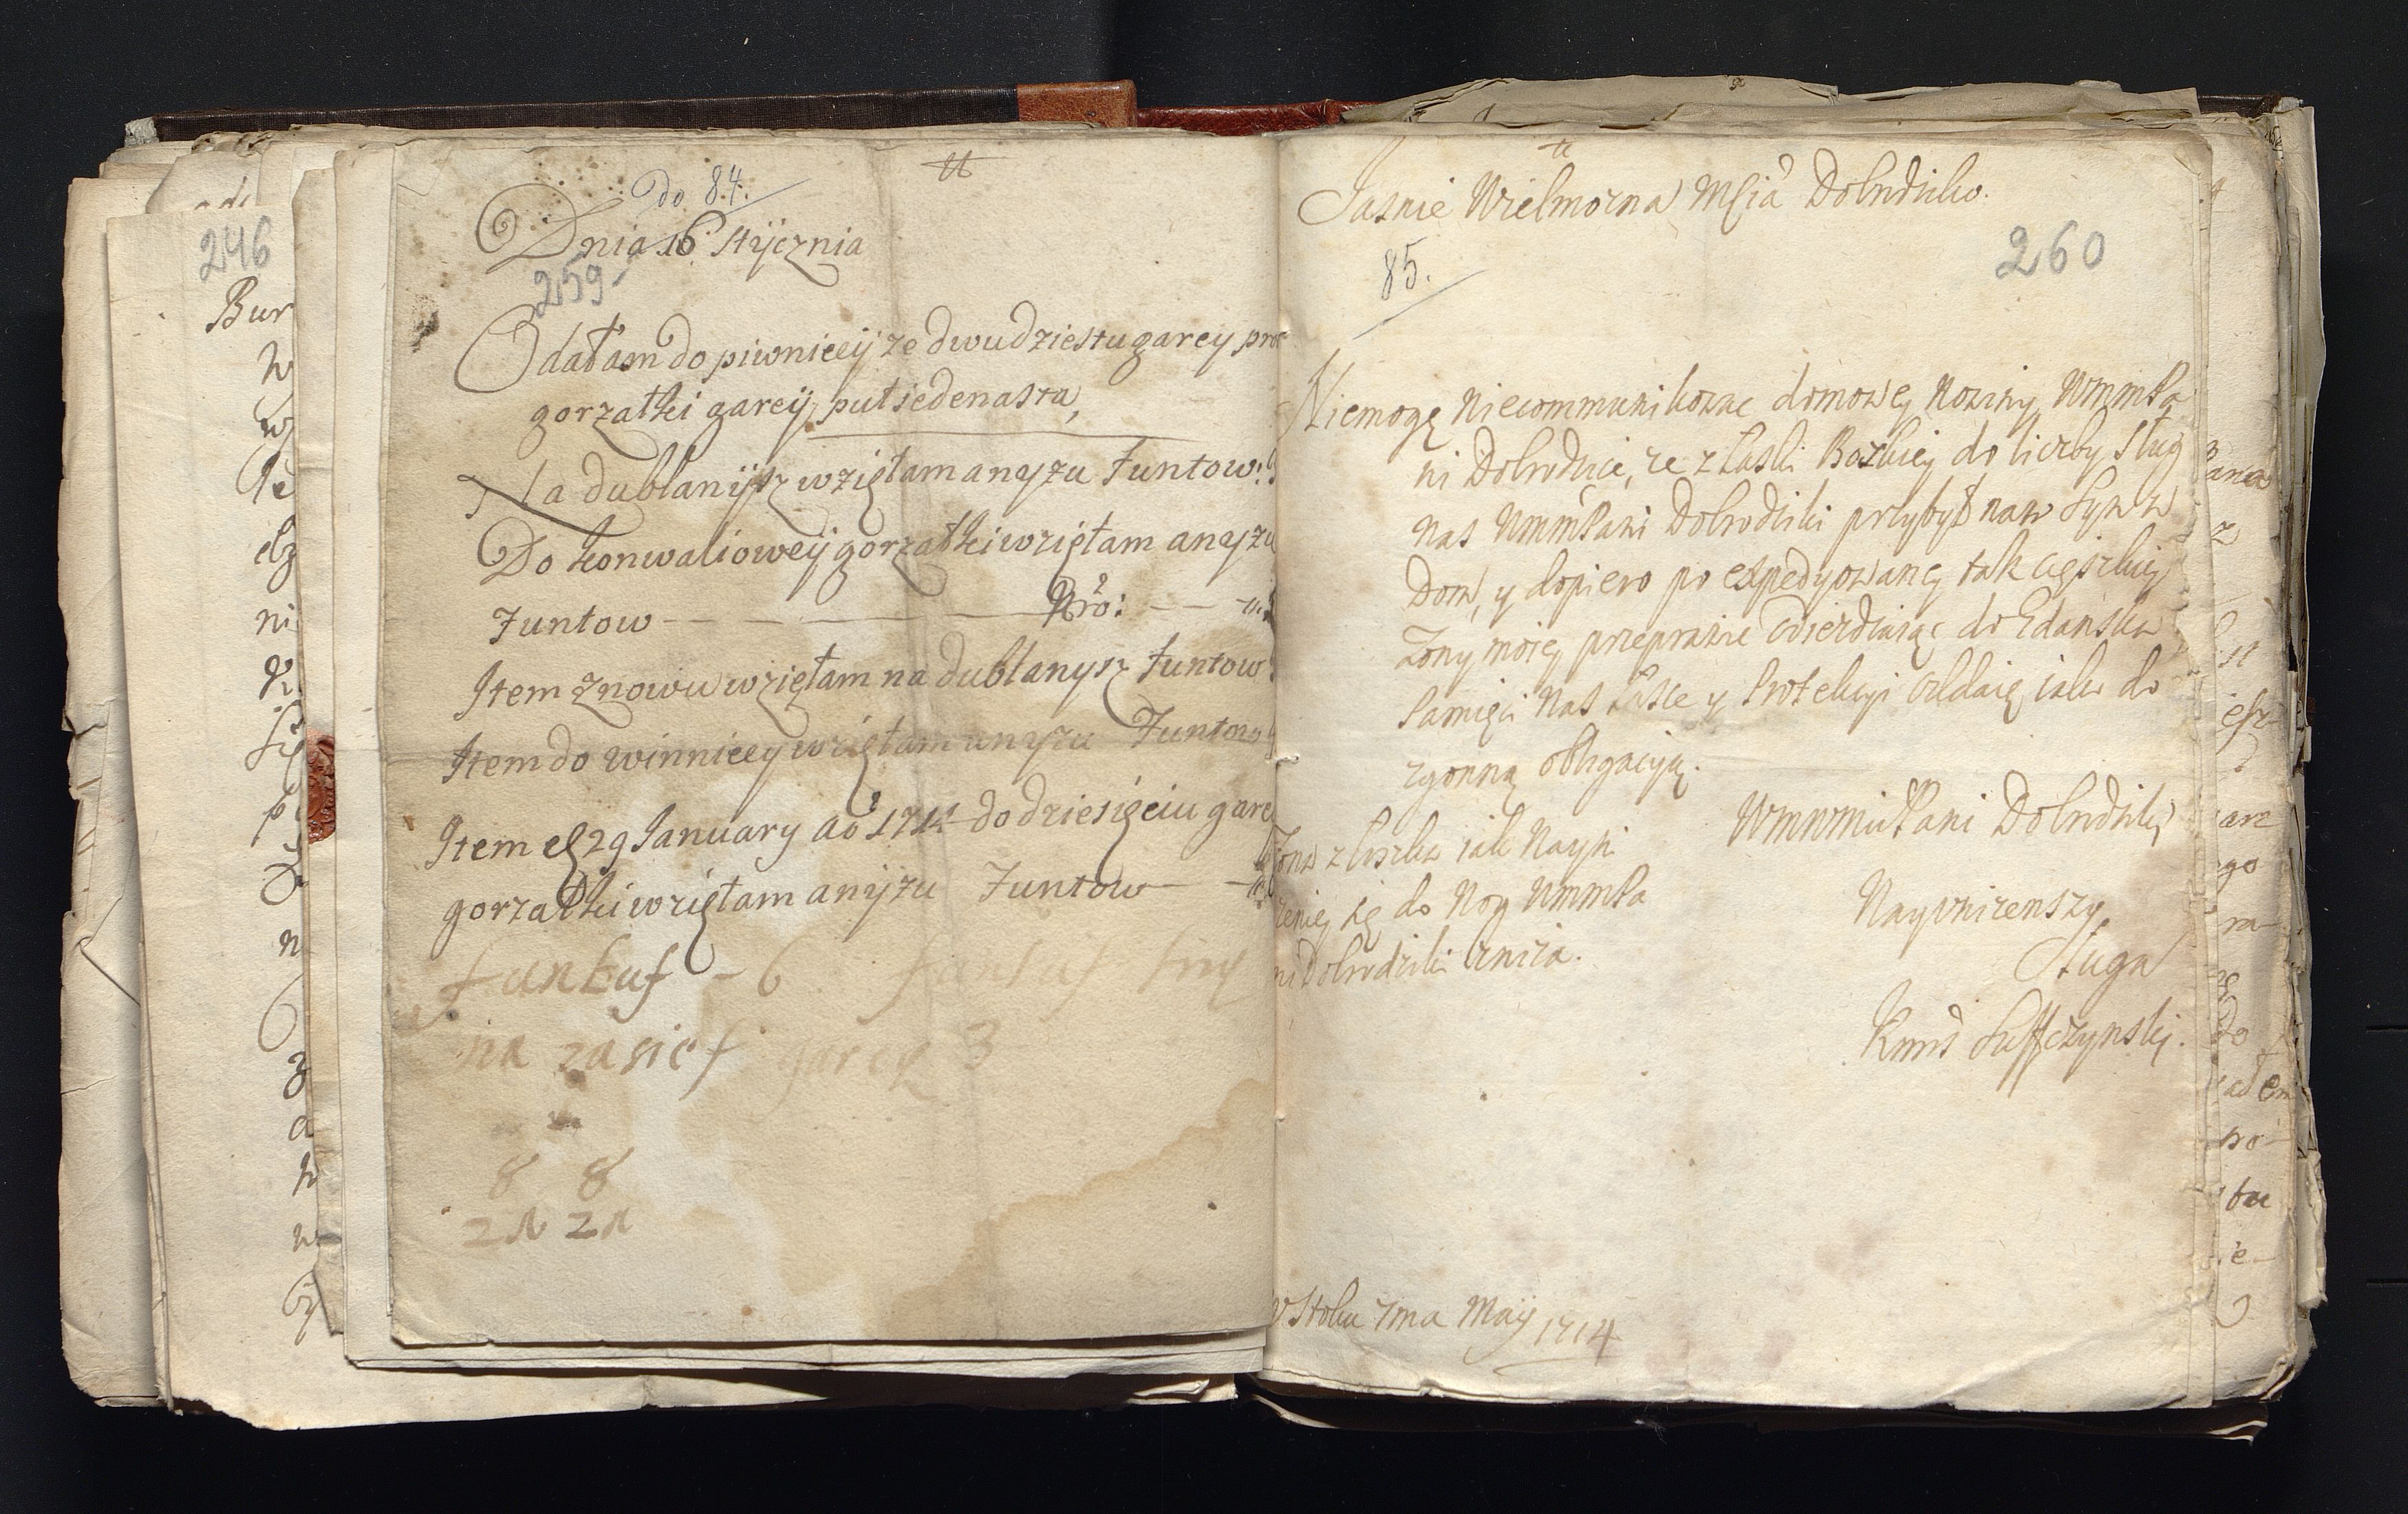 246
Bur
tt
do 84.
Dnia 16 Stycznia
259
Odałam do piwnicey ze dwudziestu garcy pro
gorzałki garcy puł iedenasta,
Na dublanysz wzięłam anyzu Funtow:
Do konwaliowey gorzałki wzięłam anyzu
Funtow — — — Nro: — —
Item znowu wzięłam na dublanysz funtow
Item do winnicey wzięłam anyzu Funtow
Item 29 January Ao 1714 do dziesięciu garc
gorzałki wzięłam anyzu Funtow — —
6
na zasief garcy 3
8 8
21 21
tt
Jasnie Wielmozna Mścia Dobrodziko.
85.
260
Niemogę niecommunikowac domowey Nowiny WmmPa
ni Dobrodzice, ze z łaski Bozkiey do liczby sług
nas WmmPani Dobrodziki przybył nam Syn w
Dom, y dopiero po expedyowaney tak cięszkiey
Zony moiey przeprawie odiezdzaiąc do Gdanska
Pamięci nas łasce y Protekcyi oddaię iako do
zgonną obligacyą.
WmmmPani Dobrodziki
Nayunizenszy
Sługa
Suffczynski.
Zona z łoszka iak Nayni
zeniey się do Nog WmmPa
ni Dobrodziki zniza.
w Stoku 7ma Maij 1714